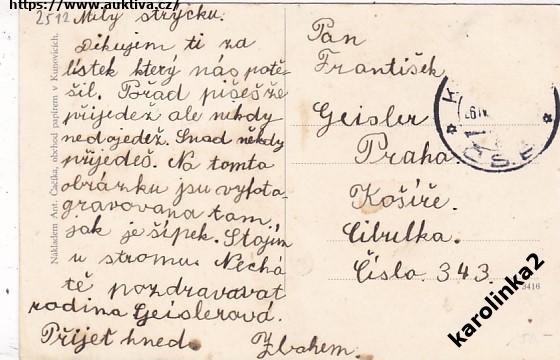 https://www.auktiva.cz/
2512
Milý strýčku.
Děkujem ti za
lístek který nás potě-
šil. Pořad pišeš že
přijedež ale nikdy
nedojedež. Snad někdy
přijedeš. Na tomto
obrázku jsu vyfota-
gravovana tam,
jak je šípek. Stojím
u stromu. Nechá
tě pozdravavat
rodina Geislerová.
Přijeť hned. Zbohem.
Pan
František
Geisler
Praha
Košíře.
Cibulka.
Číslo. 343.
Nákladem Ant. Čačíka, obchod papírem v Kunovicích.
Č.S.P.
3416
karolinka2